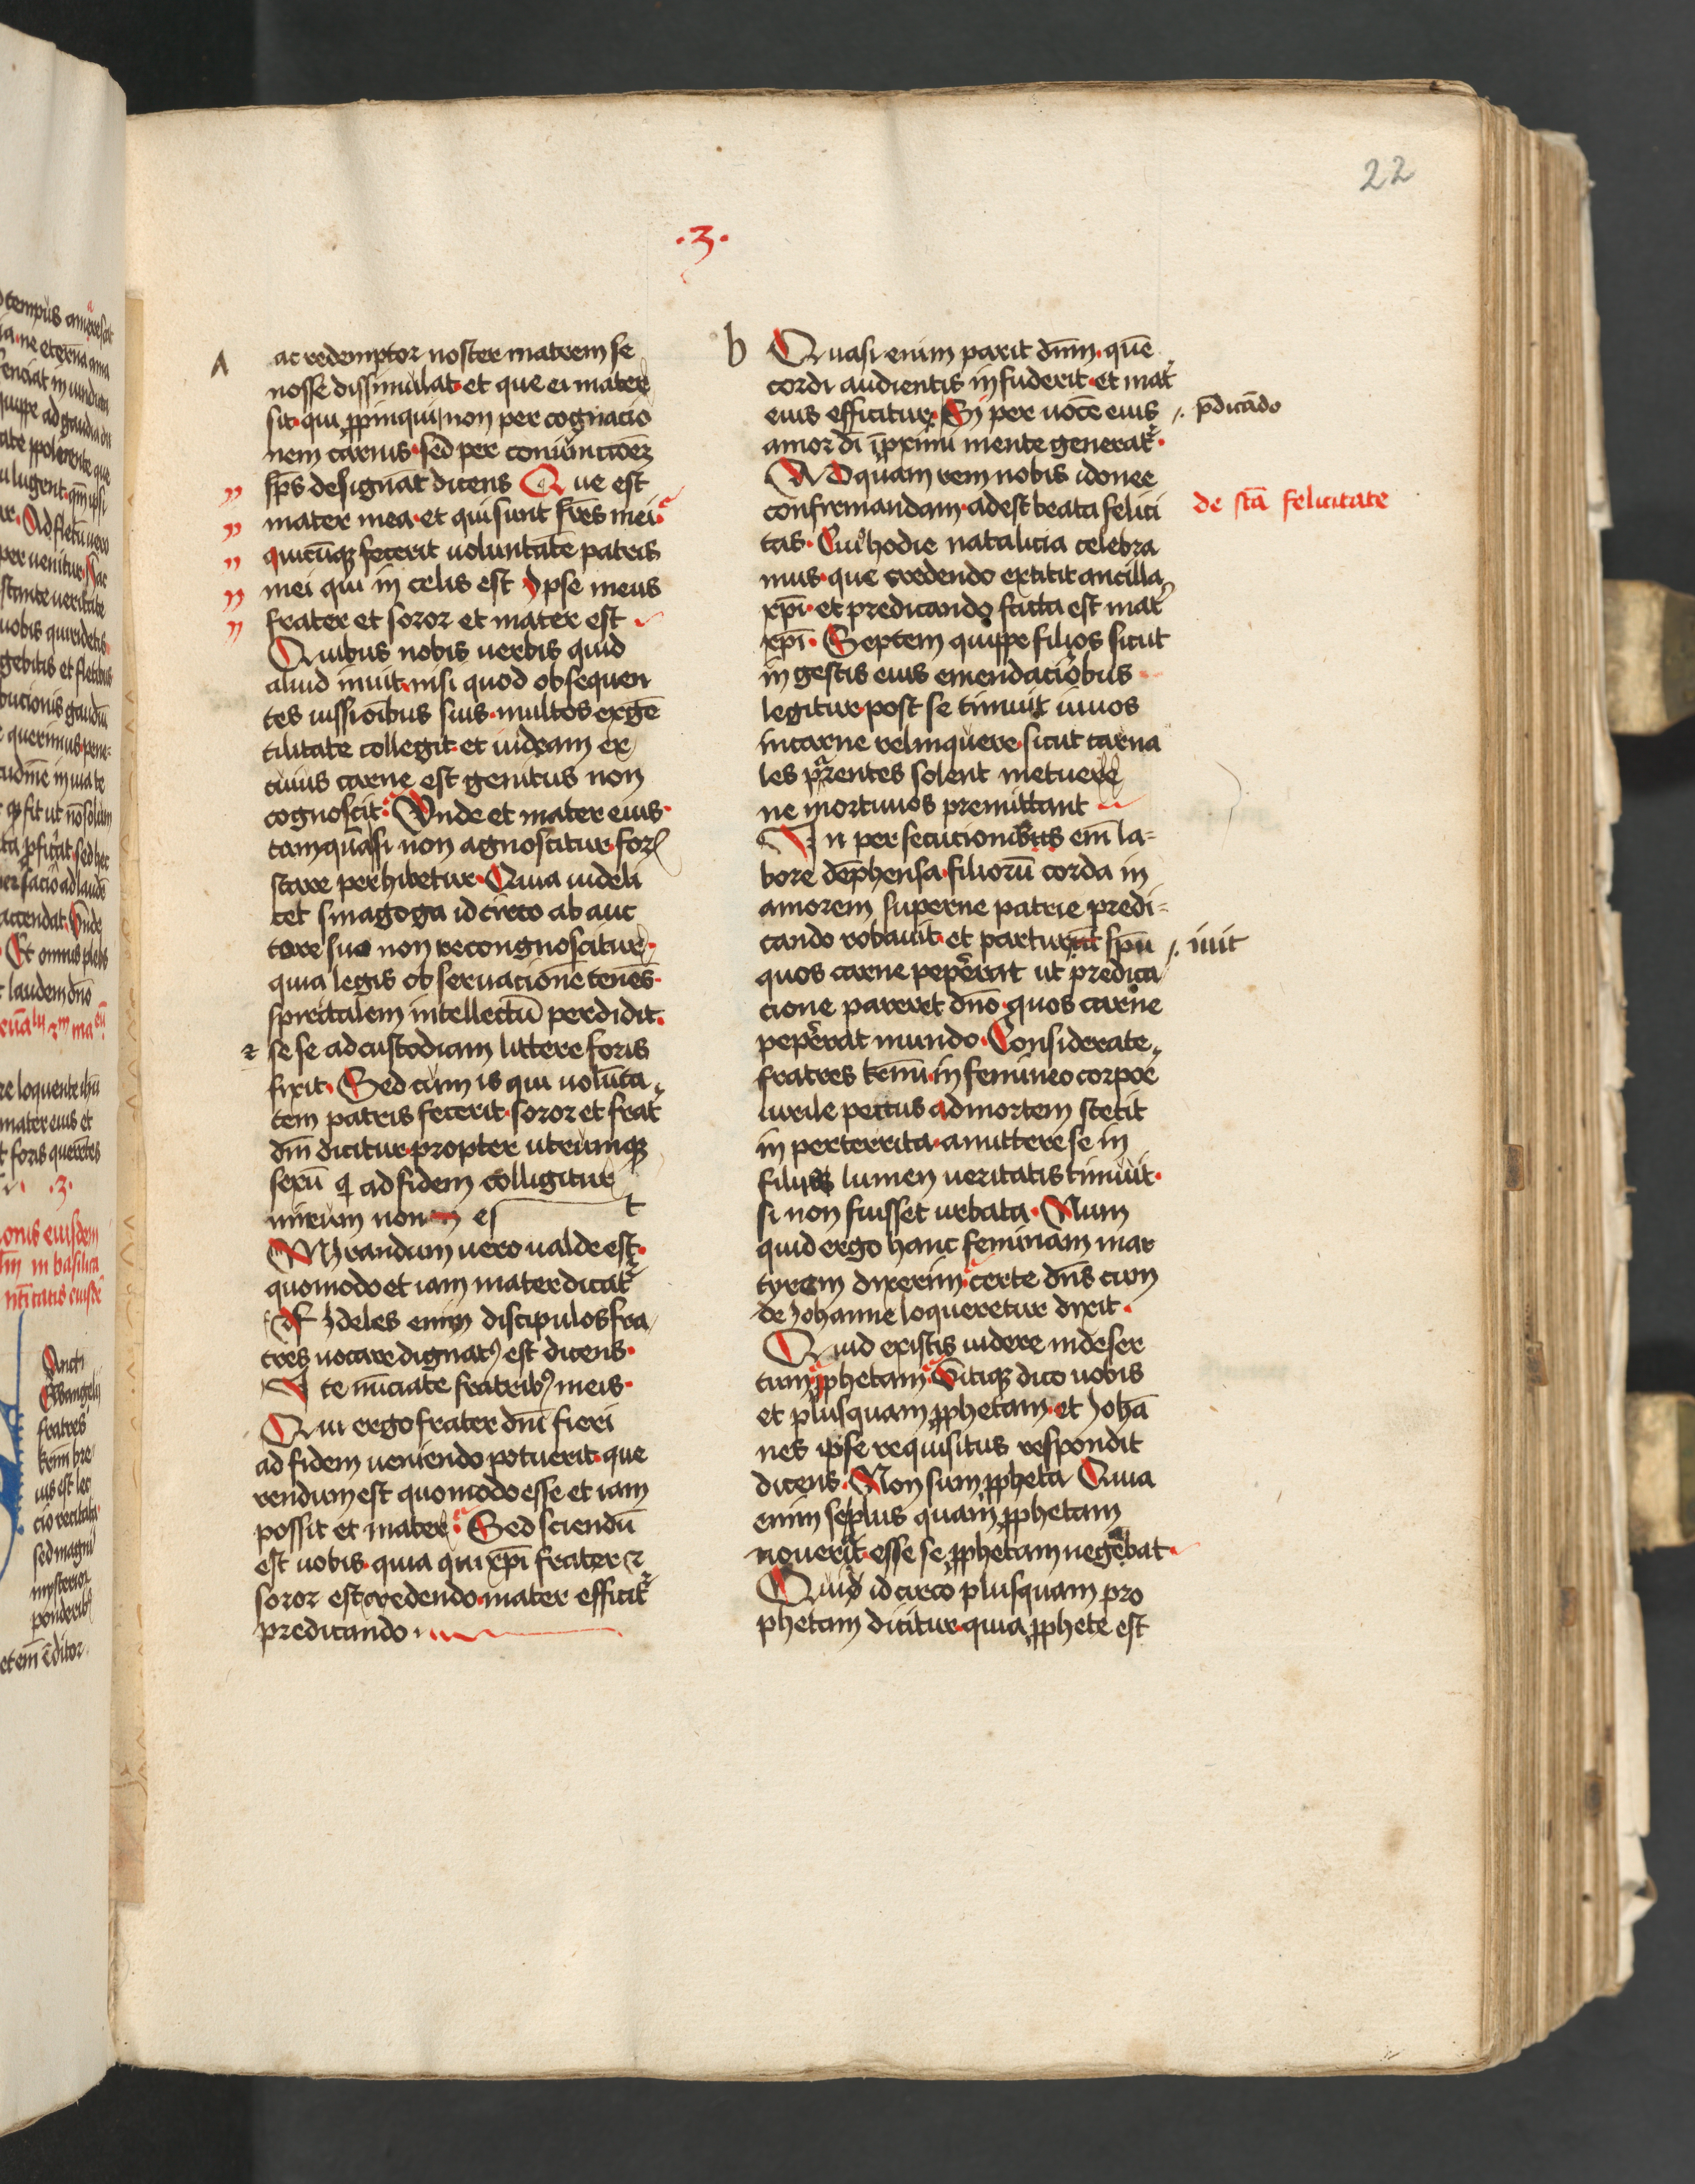 22
.3.
A
ac redemptor noster matrem se
nosse dissimulat et que ei mater
sit qui ꝓpinqui non per cognacio
nem carnis sed per coniunctōem
sp̄s designat dicens Que est
mater mea et qui sunt fr̄es mei
quicūqꝫ fecerit uoluntatē patris
mei qui in celis est Ipse meus
frater et soror et mater est
Quibus nobis uerbis quid
aliud inuit nisi quod obsequen
tes iussionibus suis multos ex gē
tilitate collegit et iudeam ex
cuius carne est genitus non
cognoscit Vnde et mater eius
tamquasi non agnoscitur foris
stare perhibetur Quia uideli
cet sinagoga idcirco ab auc
tore suo non recongnoscitur
quia legis obseruacionē tenēs
spiritalem intellectū perdidit
⁊ sese ad custodiam littere foris
fixit Sed cum is qui uolunta
tem patris fecerit soror et frat̄
dn̄i dicitur propter utrumqꝫ
sexū q̄ ad fidem colligitur
mirum non es t
Mirandum uero ualde est
quomodo et iam mater dicat᷑
Fideles enim discipulos fra
tres uocare dignatꝰ est dicens
Ite nūciate fratribꝰ meis
Qui ergo frater dn̄i fieri
ad fidem ueniendo potuerit que
rendum est quomodo esse et iam
possit et mater Sed sciendū
est uobis quia qui xp̄i frater ⁊
soror est credendo mater efficit᷑
predicando
b
Quasi enim parit dn̄m quē
cordi audientis infuderit et mat̄
eius efficitur Si per uocē eius
p̄dicādo
amor dī ī proximi mente generat᷑
AD quam rem nobis idonee
confirmandam adest beata felici
de scā felicitate
tas Cuiꝰ hodie natalicia celebra
mus que credendo extitit ancilla
xp̄i et predicando facta est mat̄
xp̄i Septem quippe filios sicut
in gestis eius emendacioribus
legitur post se timuit uiuos
in carne relinquere sicut carna
les parentes solent metuere
ne mortuuos premittant
In persecutionibus em̄ la=
bore dephensa filiorū corda in
amorem superne patrie predi=
cando robauit et parturiit spū
iuit
quos carne pepererat ut predica
cione pareret dn̄o quos carne
pepererat mundo Considerate
fratres kr̄mi in femineo corpore
uirile pectus ad mortem stetit
in perterrita amittere se in
filiis lumen ueritatis timuit
si non fuisset urbata Num
quid ergo hanc feminam mar
tyrem dixerim certe dn̄s cum
de Johanne loqueretur dixit
Quid existis uidere in deser
tum ꝓphetam Vtiqꝫ dico uobis
et plusquam ꝓphetam et Johā
nes ipse requisitus respondit
dicens Non sum ꝓpheta Quia
enim se plus quam ꝓphetam
nouerit esse se ꝓphetam negebat
Quid idcirco plusquam pro
phetam dicitur quia ꝓphete est